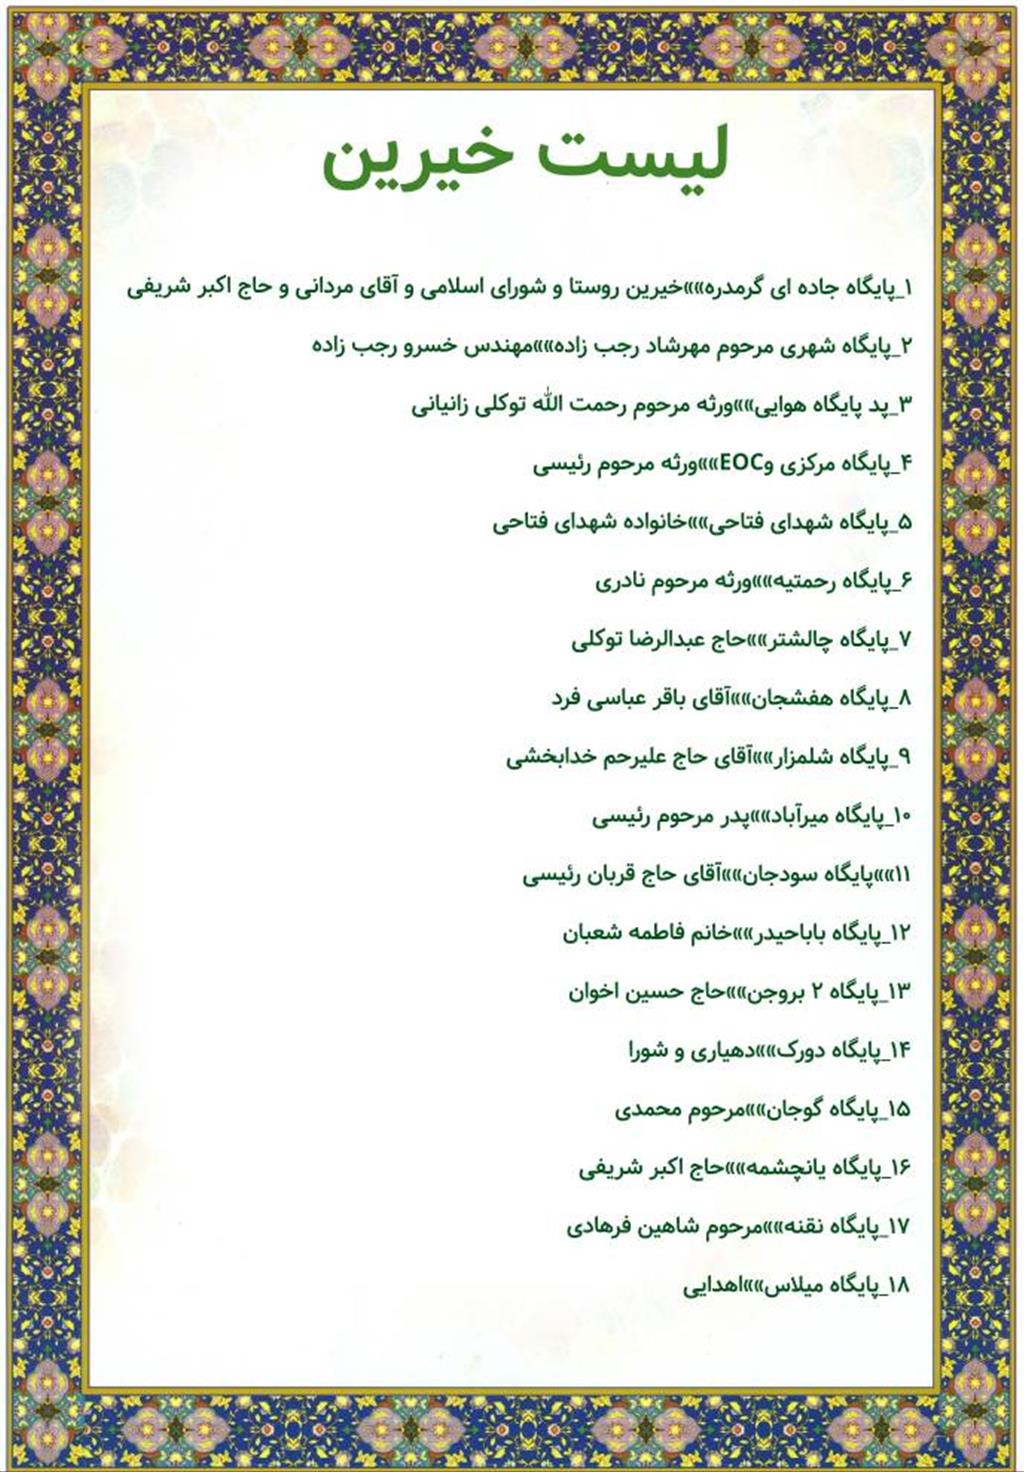 لیست خیرین
۱_پایگاه جاده ای گرمدره»»خیرین روستا و شورای اسلامی و آقای مردانی و حاج اکبر شریفی
۲_پایگاه شهری مرحوم مهرشاد رجب زاده»»مهندس خسرو رجب زاده
۳_پد پایگاه هوایی»»ورثه مرحوم رحمت الله توکلی زانیانی
۴_پایگاه مرکزی وEOC»»ورثه مرحوم رئیسی
۵_پایگاه شهدای فتاحی»»خانواده شهدای فتاحی
۶_پایگاه رحمتیه»»ورثه مرحوم نادری
۷_پایگاه چالشتر»»حاج عبدالرضا توکلی
۸_پایگاه هفشجان»»آقای باقر عباسی فرد
۹_پایگاه شلمزار»»آقای حاج علیرحم خدابخشی
۱۰_پایگاه میرآباد»»پدر مرحوم رئیسی
۱۱»»پایگاه سودجان»»آقای حاج قربان رئیسی
۱۲_پایگاه باباحیدر»»خانم فاطمه شعبان
۱۳_پایگاه ۲ بروجن»»حاج حسین اخوان
۱۴_پایگاه دورک»»دهیاری و شورا
۱۵_پایگاه گوجان»»مرحوم محمدی
۱۶_پایگاه یانچشمه»»حاج اکبر شریفی
۱۷_پایگاه نقنه»»مرحوم شاهین فرهادی
۱۸_پایگاه میلاس»»اهدایی